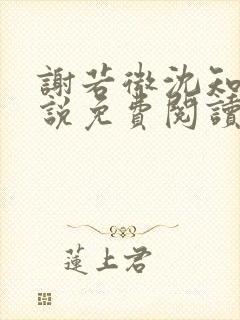 謝若微沈知
説免費閱讀
蓮上君